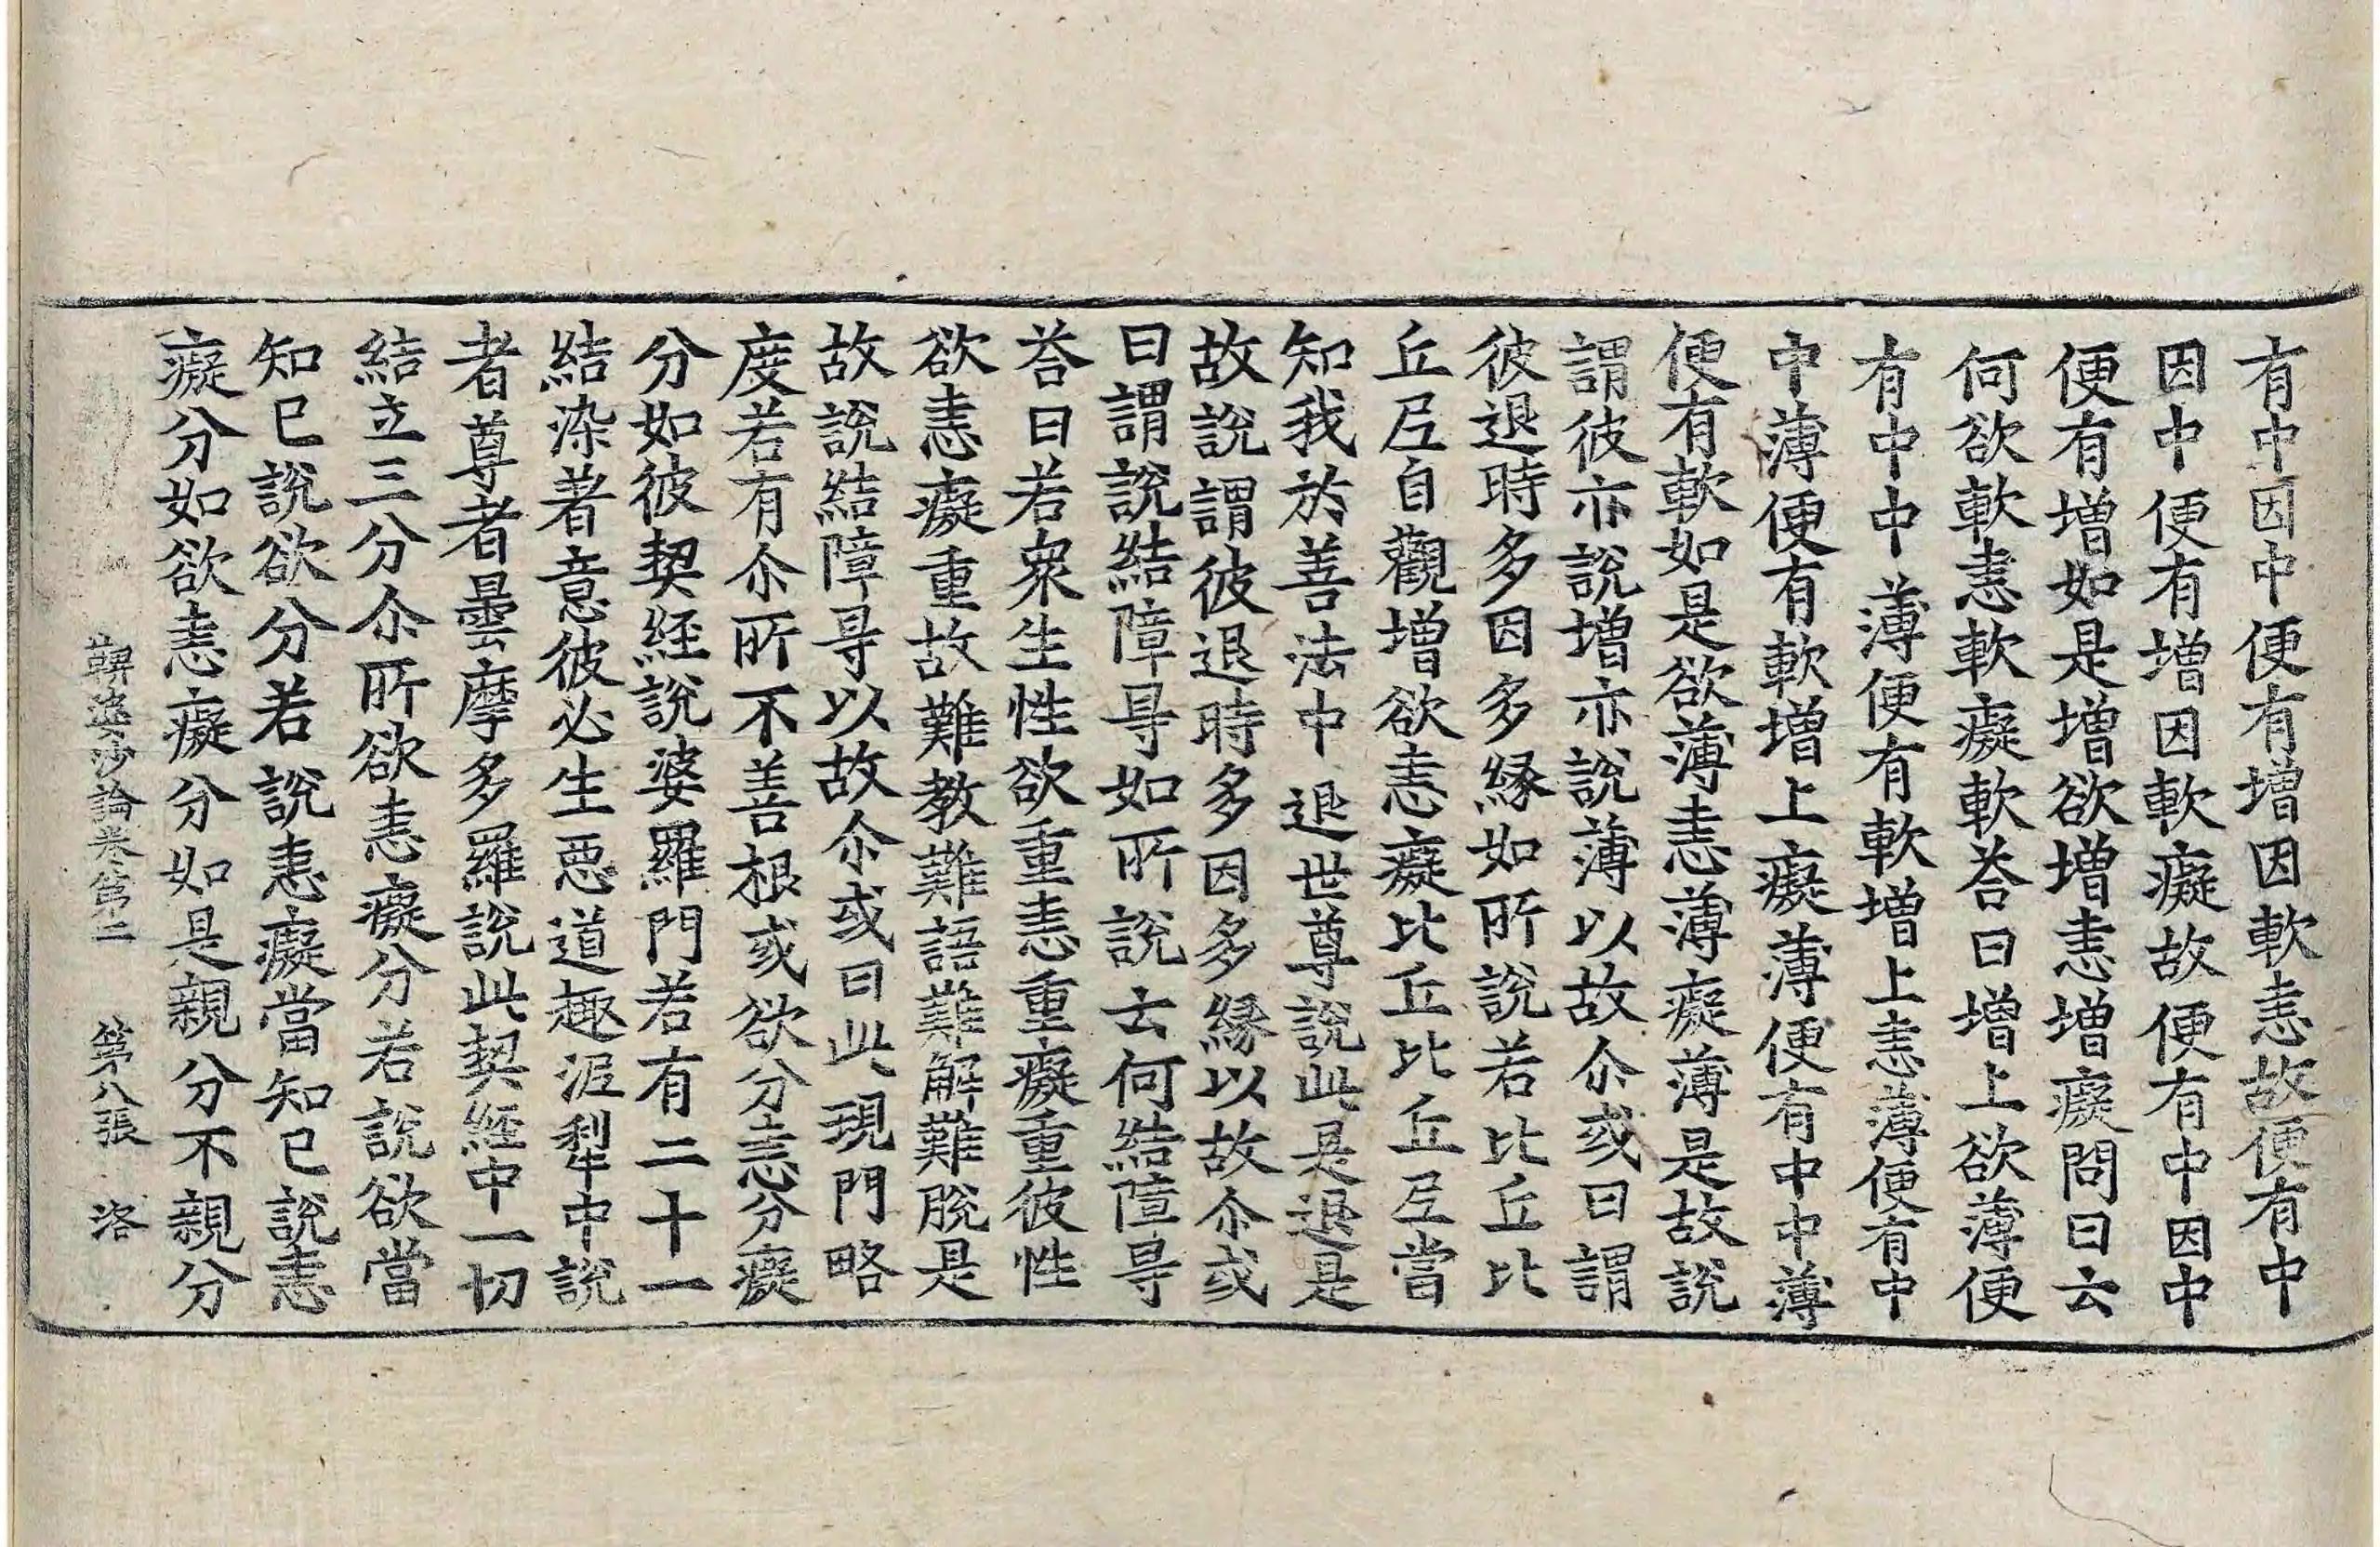 有中因中便有增因軟恚故便有中
因中便有增因軟癡故便有中因中
便有增如是增欲增恚增癡問曰云
何欲軟恚軟癡軟荅曰增上欲薄便
有中中薄便有軟增上恚薄便有中
中薄便有軟增上癡薄便有中中薄
便有軟如是欲薄恚薄癡薄是故說
謂彼亦說增亦說薄以故尒或曰謂
彼退時多因多緣如所說若比丘比
丘𡰱自觀增欲恚癡比丘比丘𡰱當
知我於善法中退世尊說此是退是
故說謂彼退時多因多緣以故尒或
曰謂說結障㝵如所說云何結障㝵
荅曰若衆生性欲重恚重癡重彼性
欲恚癡重故難教難語難解難脫是
故說結障㝵以故尒或曰此現門略
度若有尒所不善根或欲分恚分癡
分如彼契經說婆羅門若有二十一
結染著意彼必生惡道趣泥犁中說
者尊者曇摩多羅說此契經中一切
結立三分尒所欲恚癡分若說欲當
知已說欲分若說恚癡當知已說恚
癡分如欲恚癡分如是親分不親分
鞞婆沙論卷第二　第八張　洛